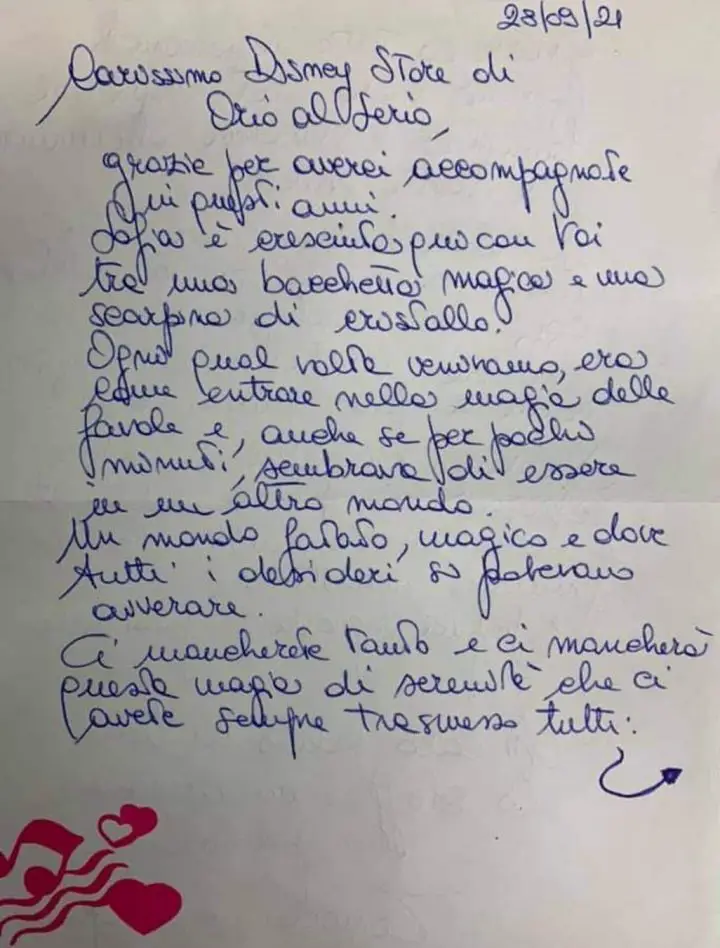 28/09/21
Carissimo Disney Store di
Orio al Serio,
grazie per averci accompagnate
in questi anni.
Sofia è cresciuta qui con Voi
tra una bacchetta magica e una
scarpina di cristallo.
Ogni qual volta venivamo, era
come entrare nella magia delle
favole e, anche se per pochi
minuti, sembrava di essere
in un altro mondo.
Un mondo fatato, magico e dove
tutti i desideri si potevano
avverare.
Ci mancherete tanto e ci mancherà
questa magia di serenità che ci
avete sempre trasmesso tutti: